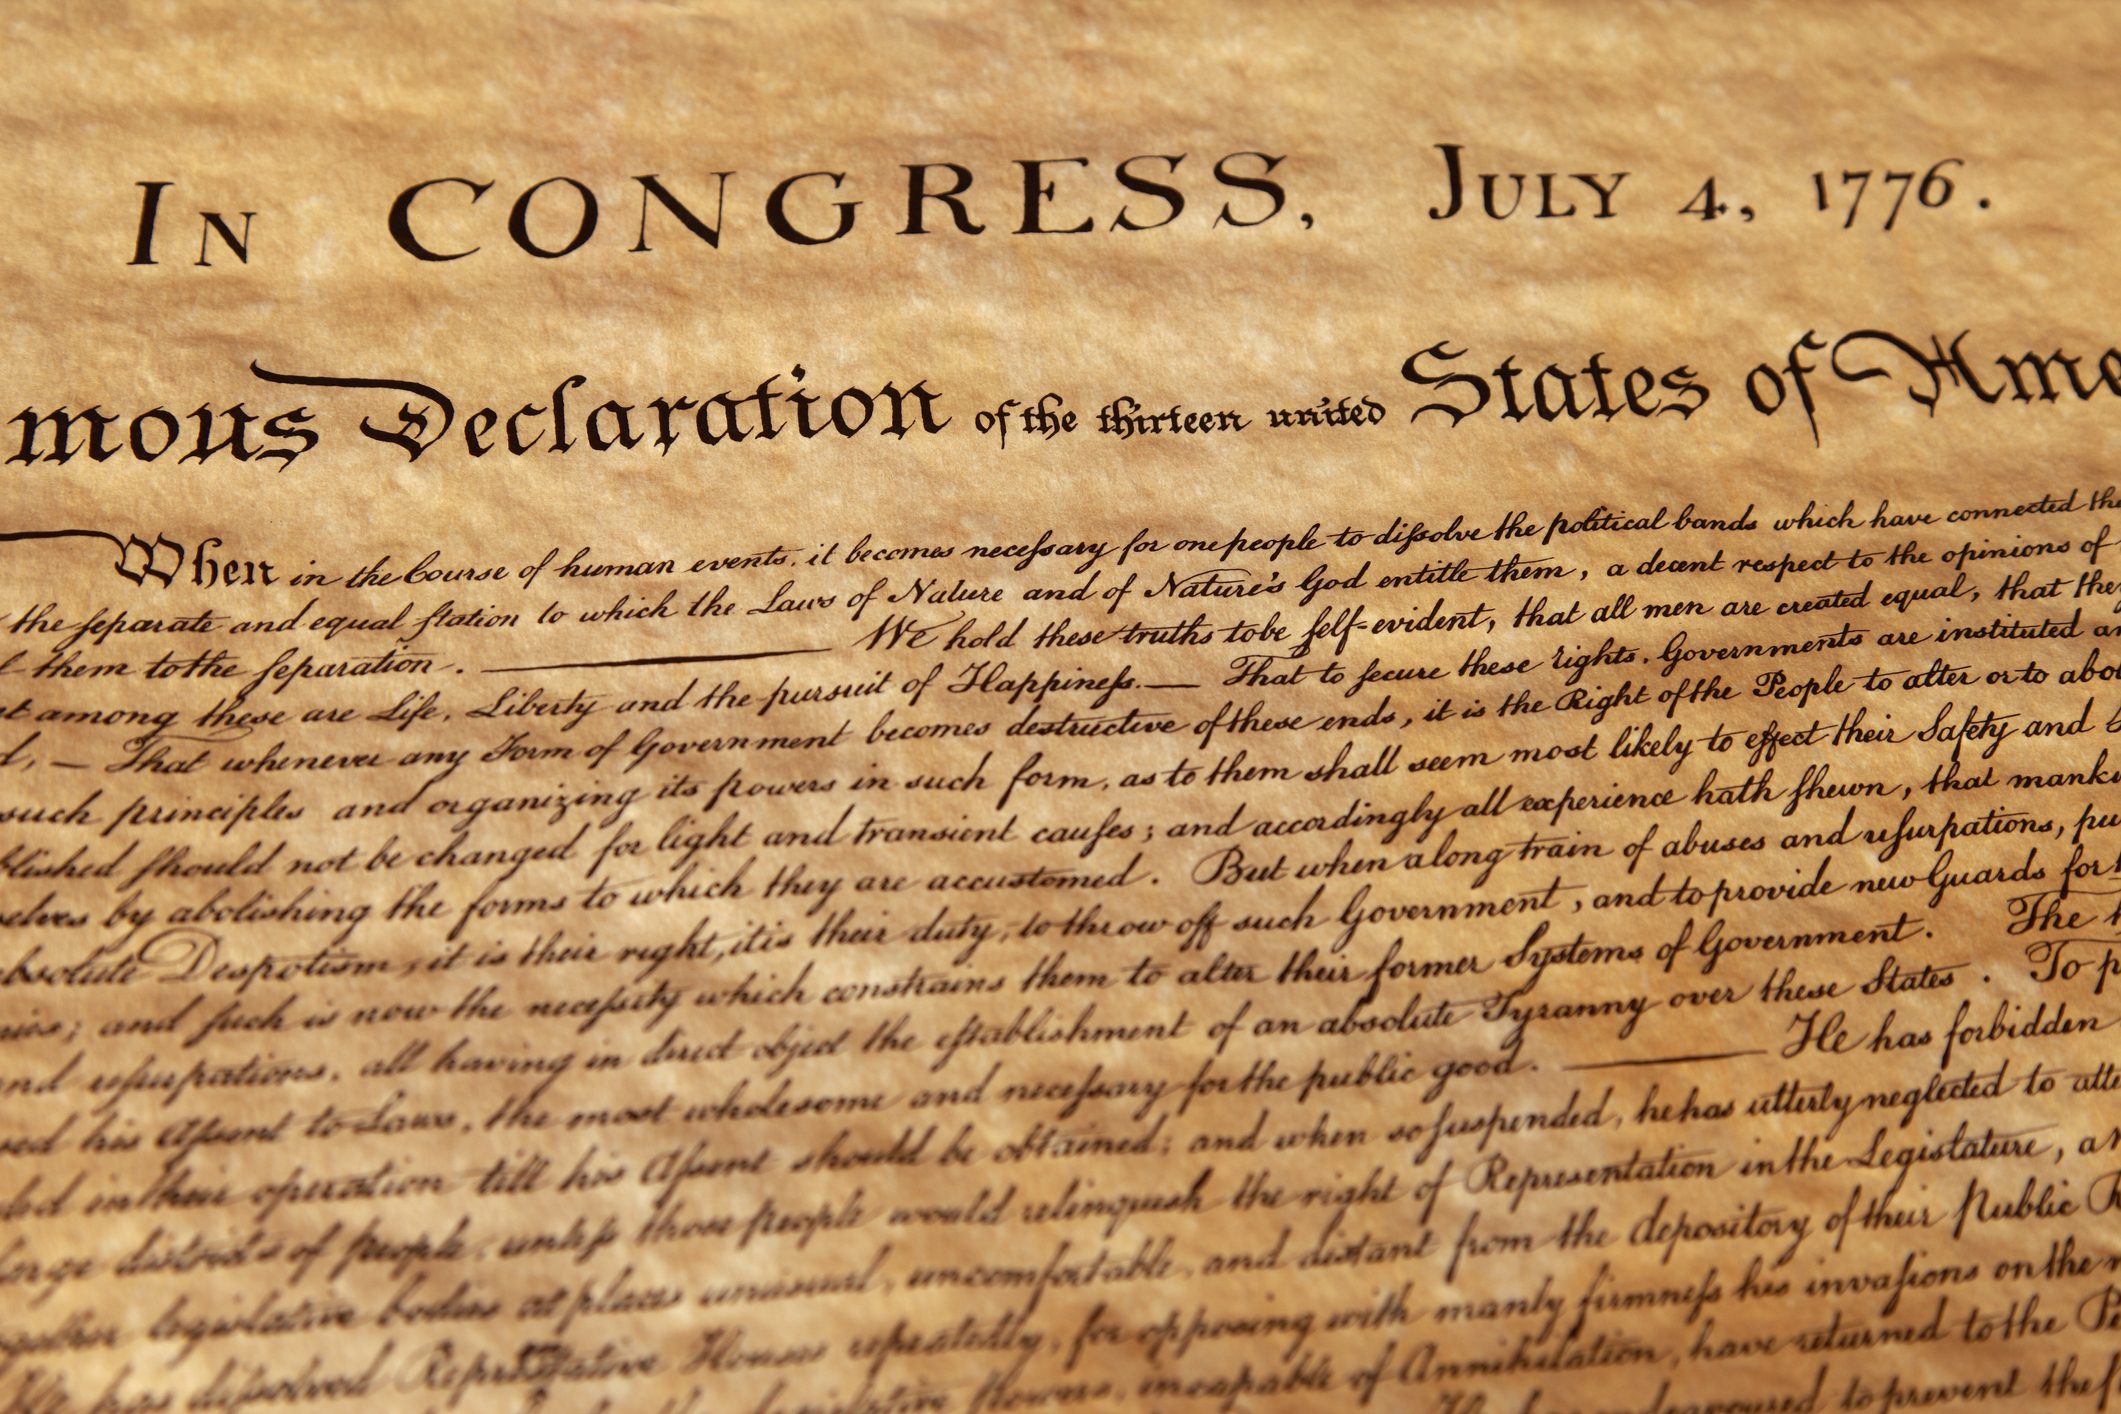 In CONGRESS, July 4, 1776.
mous Declaration of the thirteen united States of Ame
When in the Course of human events, it becomes neceſsary for one people to diſsolve the political bands which have connected the
the ſeparate and equal ſtation to which the Laws of Nature and of Nature's God entitle them, a decent respect to the opinions of
l them to the ſeparation. ——— We hold these truths to be ſelf-evident, that all men are created equal, that they
at among these are Life, Liberty and the pursuit of Happineſs.— That to ſecure these rights, Governments are instituted a
d, — That whenever any Form of Government becomes destructive of these ends, it is the Right of the People to alter or to abo
such principles and organizing its powers in such form, as to them shall seem most likely to effect their Safety and
bliſhed ſhould not be changed for light and transient cauſes; and accordingly all experience hath ſhewn, that manki
selves by abolishing the forms to which they are accustomed. But when a long train of abuses and uſurpations, pu
absolute Despotism, it is their right, it is their duty, to throw off such Government, and to provide new Guards for
nies; and ſuch is now the neceſsity which constrains them to alter their former Systems of Government. The
and uſurpations, all having in direct object the eſtablishment of an absolute Tyranny over these States. To p
sed his Aſsent to Laws, the most wholesome and neceſsary for the public good. ——— He has forbidden
ded in their operation till his Aſsent should be obtained; and when so ſuspended, he has utterly neglected to atte
large districts of people, unleſs those people would relinquish the right of Representation in the Legislature, a
ogether legislative bodies at places unusual, uncomfortable, and distant from the depository of their Public R
He has diſsolved Representative Houses repeatedly, for opposing with manly firmneſs his invaſions on the
Powers, incapable of Annihilation, have returned to the Pe
to prevent the